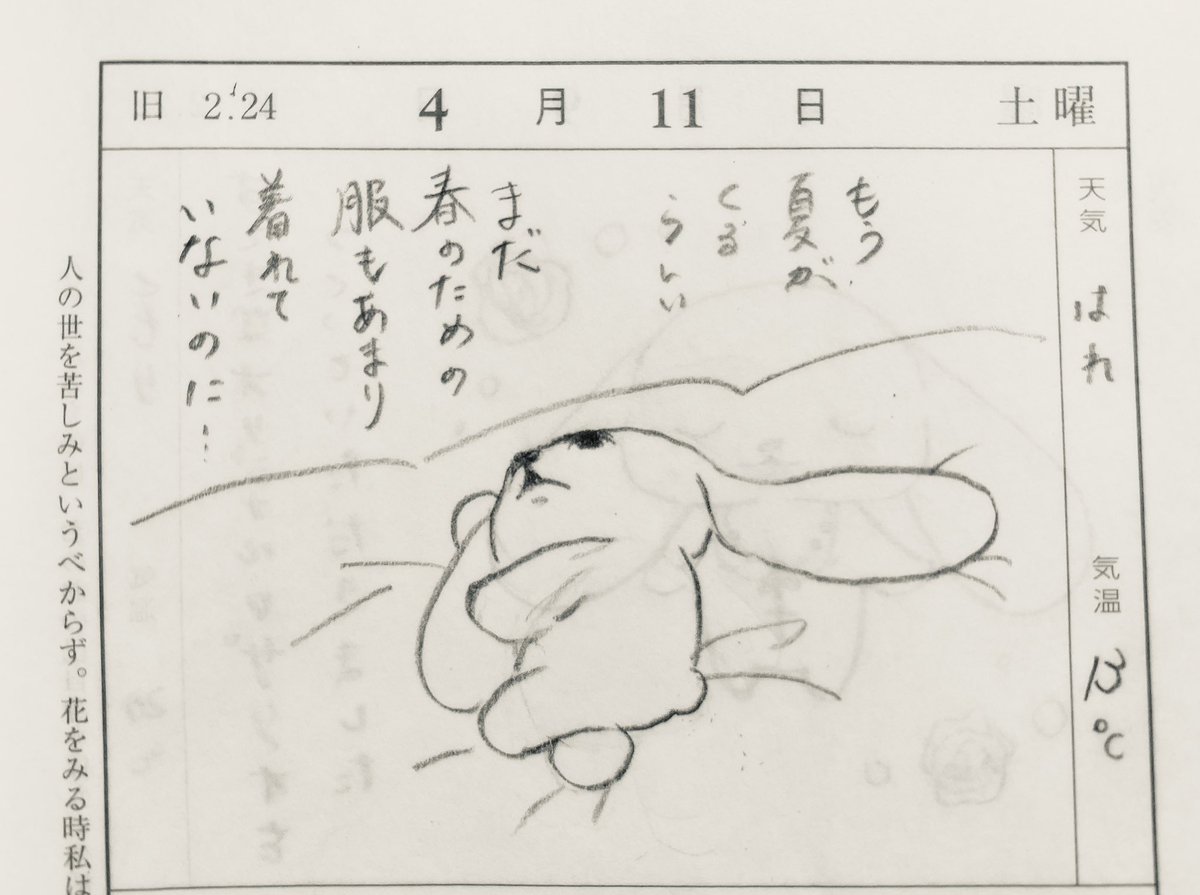 旧 2.24 4月11日 土曜
天気 はれ
気温 13℃
もう
夏が
くる
らしい
まだ
春のための
服もあまり
着れて
いないのに…
人の世を苦しみというべからず。花をみる時私は